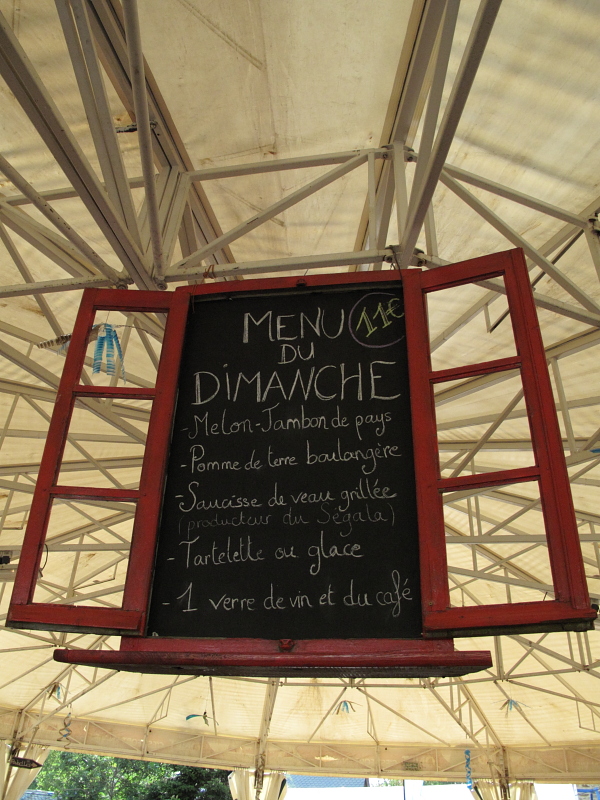 MENU 11€
DU
DIMANCHE
- Melon-Jambon de pays
- Pomme de terre boulangère
- Saucisse de veau grillée
(producteur du Ségala)
- Tartelette ou glace
- 1 verre de vin et du café